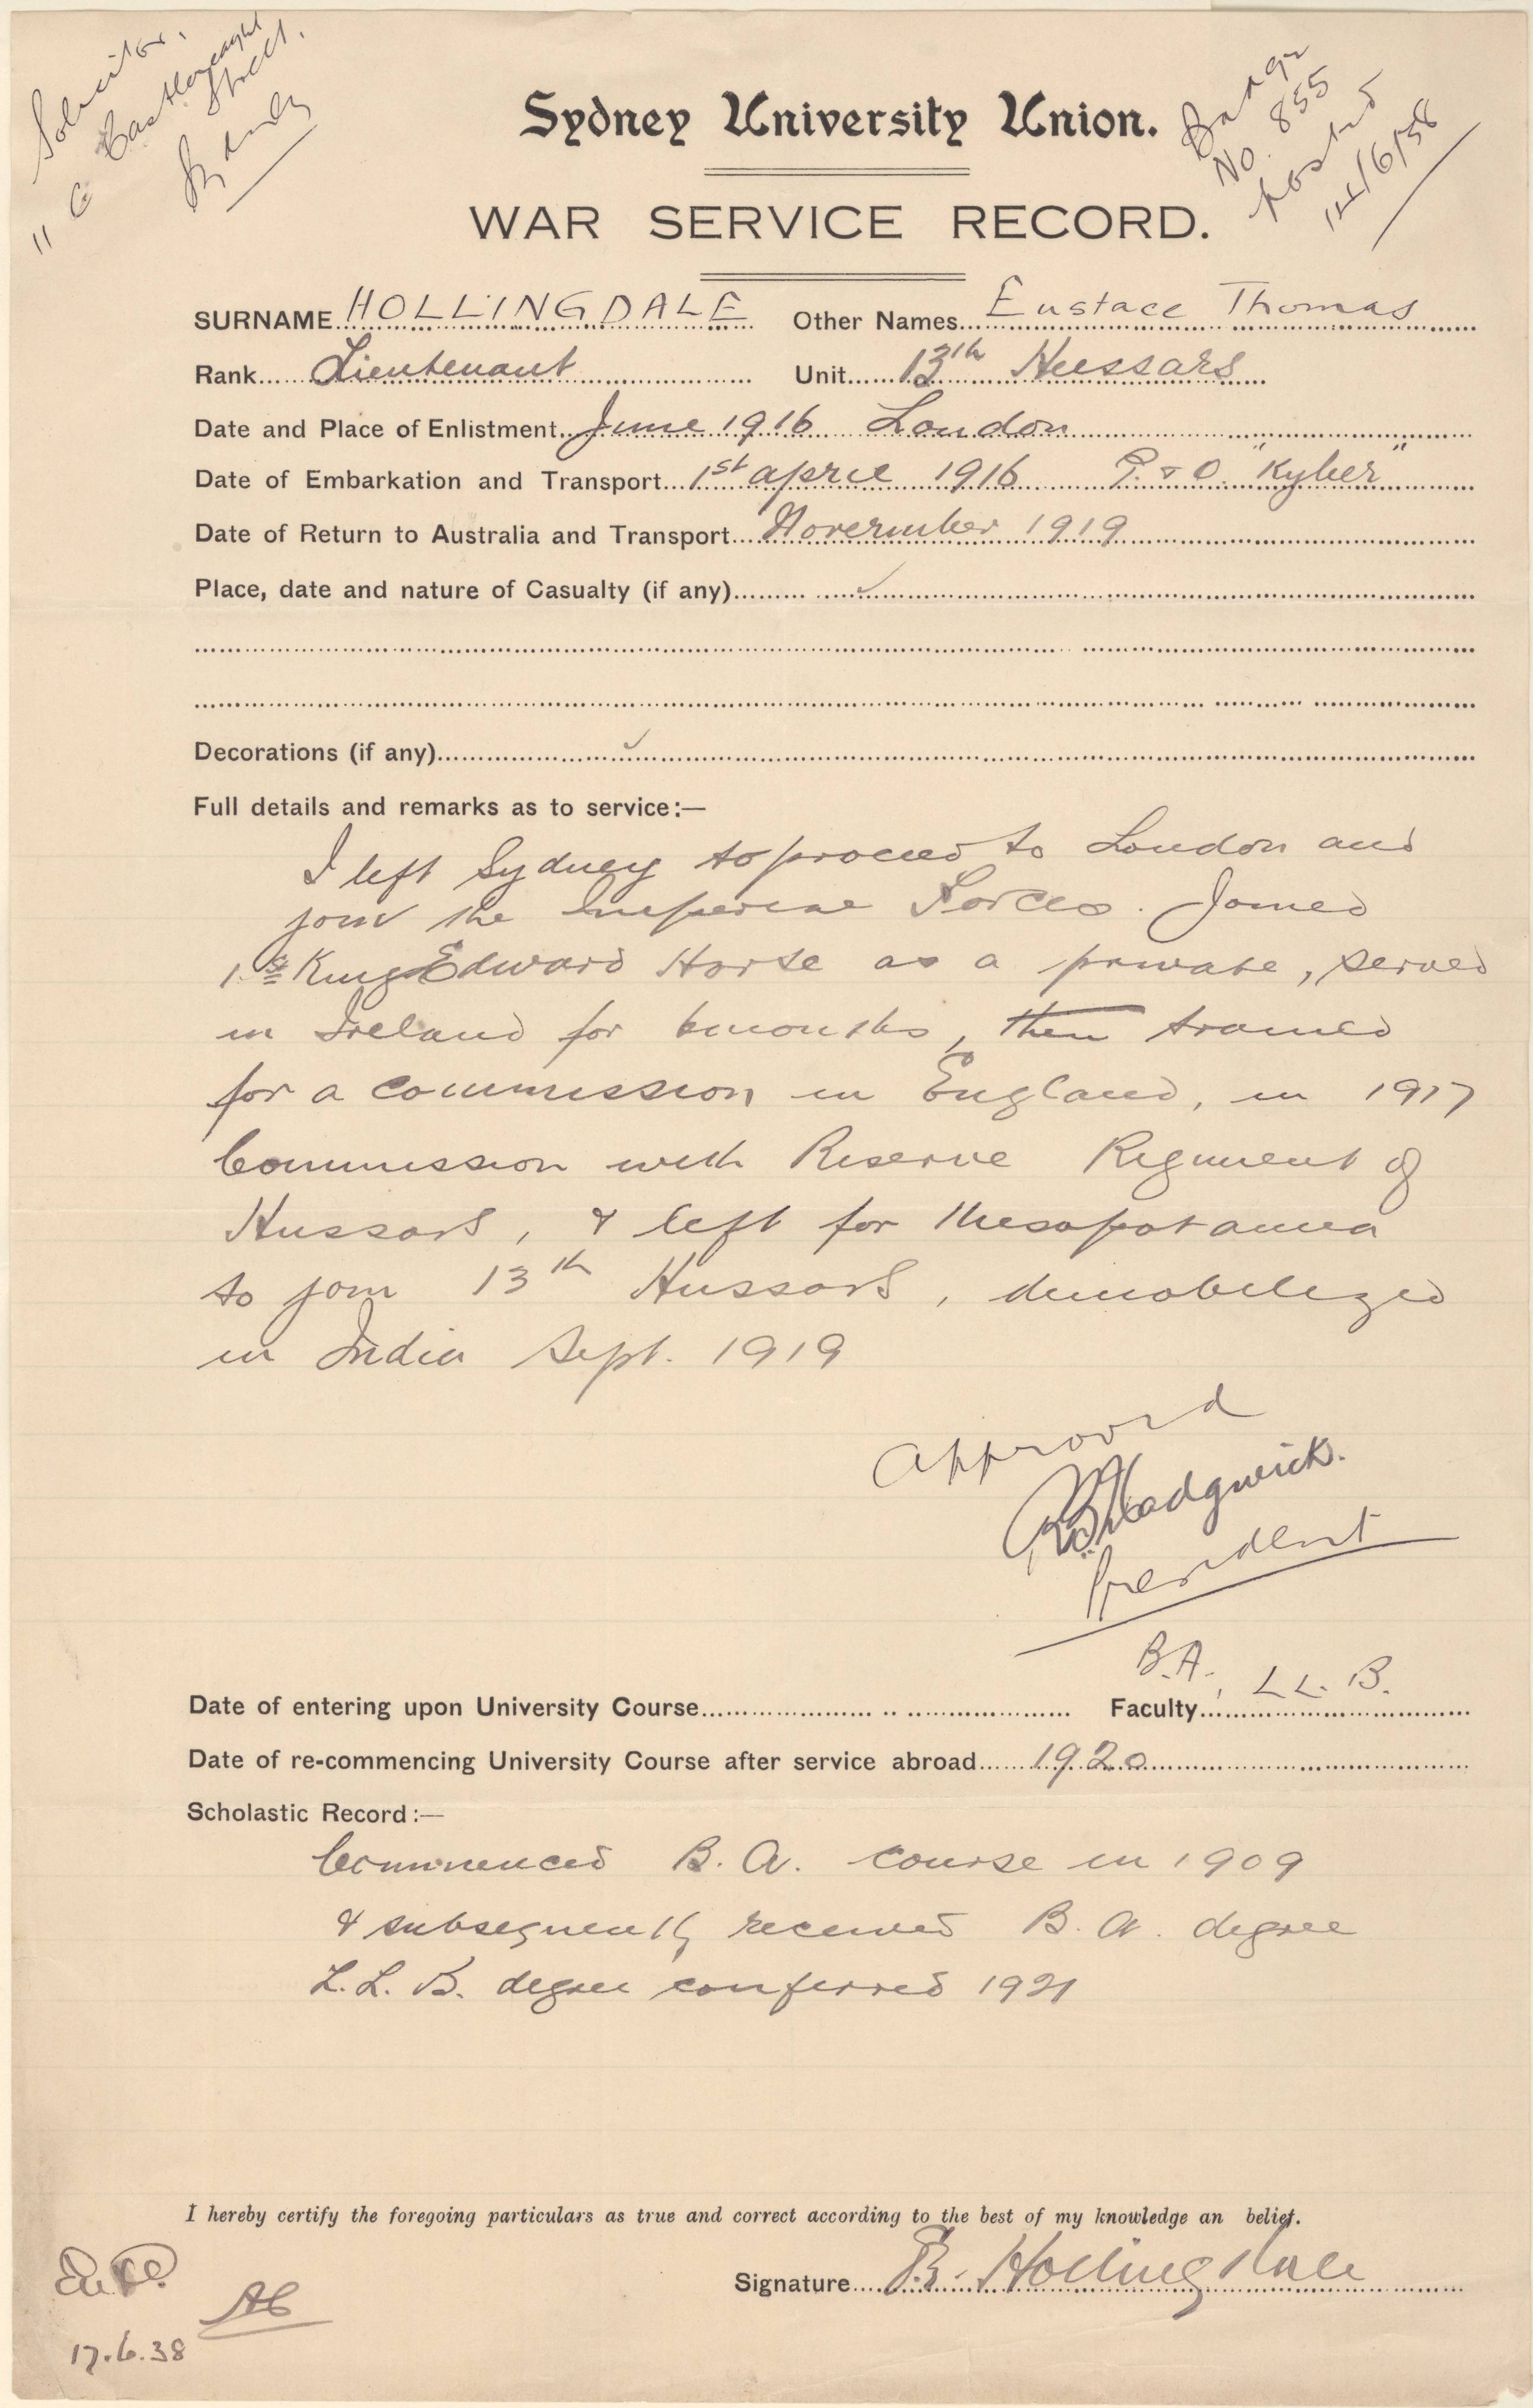 Solicitor.
11 C Castlereagh
Street.
Sydney
Badge
No. 855
posted
14/6/38
Sydney University Union.
WAR SERVICE RECORD.
SURNAME HOLLINGDALE Other Names Eustace Thomas
Rank Lieutenant Unit 13th Hussars
Date and Place of Enlistment June 1916 London
Date of Embarkation and Transport 1st April 1916 P. & O. "Kyber"
Date of Return to Australia and Transport November 1919
Place, date and nature of Casualty (if any)
Decorations (if any)
Full details and remarks as to service:—
I left Sydney to proceed to London and
join the Imperial Forces. Joined
1st King Edward Horse as a private, served
in Ireland for 6 months, then trained
for a commission in England, in 1917
Commission with Reserve Regiment of
Hussars, & left for Mesopotamia
to join 13th Hussars, demobilized
in India Sept. 1919
Approved
President
B.A., LL.B.
Date of entering upon University Course Faculty
Date of re-commencing University Course after service abroad 1920
Scholastic Record:—
Commenced B.A. course in 1909
& subsequently received B.A. degree
L.L.B. degree conferred 1921
I hereby certify the foregoing particulars as true and correct according to the best of my knowledge an belief.
Signature Hollingdale
17.6.38